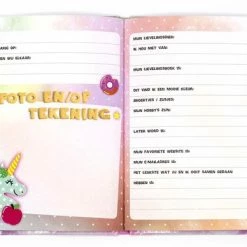 JARIG OP:
FOTO EN/OF
TEKENING
MIJN LIEVELINGSDIER:
IK HOU NIET VAN:
MIJN LIEVELINGSBOEK IS:
DIT VIND IK EEN MOOIE KLEUR:
BROERTJES / ZUSJES:
MIJN HOBBY'S ZIJN:
LATER WORD IK:
MIJN FAVORIETE WEBSITE IS:
MIJN E-MAILADRES IS:
HET GEKSTE WAT JIJ EN IK OOIT SAMEN GEDAAN
HEBBEN IS: